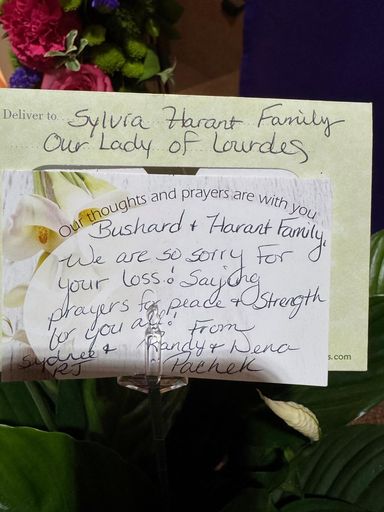 Deliver to Sylvia Harant Family
Our Lady of Lourdes
Our thoughts and prayers are with you
Bushard & Harant Family,
We are so sorry For
your loss! Saying
prayers for peace & Strength
for you all! From
Sydnee & Randy & Dena
NRJ Pachek
s.com